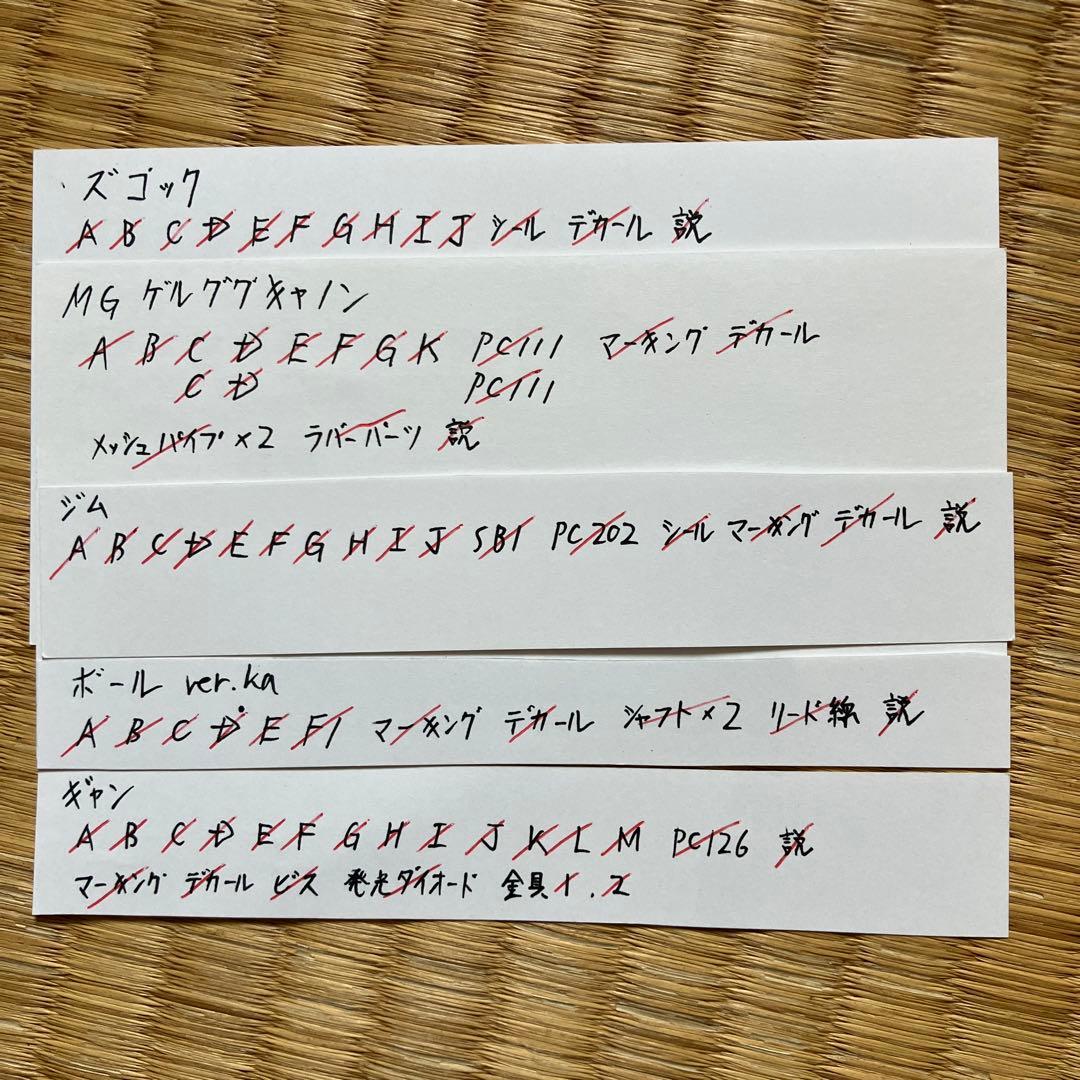 ズゴック
A B C D E F G H I J シール デカール 説
MG ゲルググキャノン
A B C D E F G K PC111 マーキング デカール
C D PC111
メッシュパイプ×2 ラバーパーツ 説
ジム
A B C D E F G H I J SB1 PC202 シール マーキング デカール 説
ボール ver.ka
A B C D E F1 マーキング デカール シャフト×2 リード線 説
ギャン
A B C D E F G H I J K L M PC126 説
マーキング デカール ビス 発光ダイオード 金具1.2